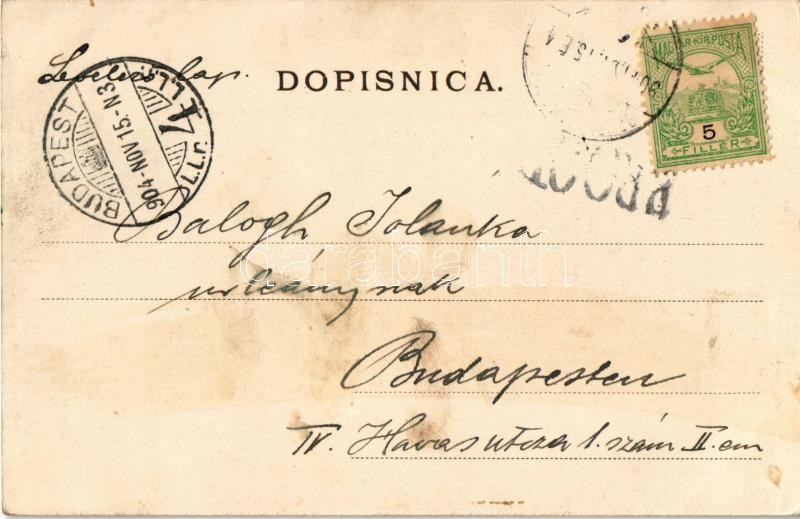 Levelező lap. DOPISNICA.
MAGYAR KIR. POSTA
5
FILLER
BUDAPEST
904 NOV 15. N3
4
Balogh Jolanka
urleánynak
Budapesten
IV. Havas utcza 1. szám II. em
darabanth